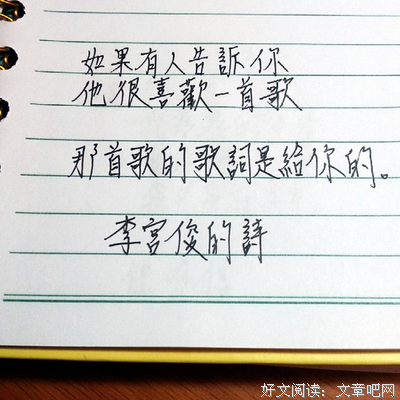 如果有人告訴你
他很喜歡一首歌
那首歌的歌詞是給你的。
李宮俊的詩
好文阅读：文章吧网